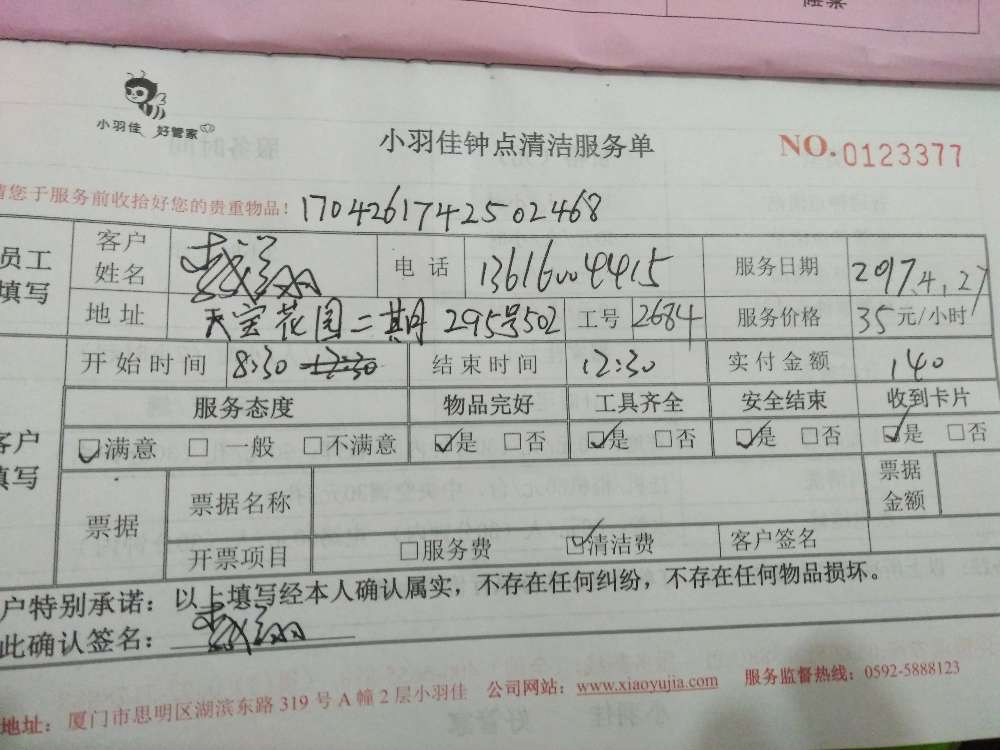 小羽佳 好管家
小羽佳钟点清洁服务单
NO.0123377
请您于服务前收拾好您的贵重物品! 170426174250 2468
员工填写
客户姓名 电话 13616004415 服务日期 2017.4.27
地址 天宝花园二期 295号502 工号 2684 服务价格 35元/小时
开始时间 8:30 12:30 结束时间 12:30 实付金额 140
客户填写
服务态度 物品完好 工具齐全 安全结束 收到卡片
☑满意 □一般 □不满意 ☑是 □否 ☑是 □否 ☑是 □否 ☑是 □否
票据 票据名称 票据金额
开票项目 □服务费 ☑清洁费 客户签名
客户特别承诺：以上填写经本人确认属实，不存在任何纠纷，不存在任何物品损坏。
此确认签名：
地址：厦门市思明区湖滨东路319号A幢2层小羽佳 公司网站：www.xiaoyujia.com 服务监督热线：0592-5888123